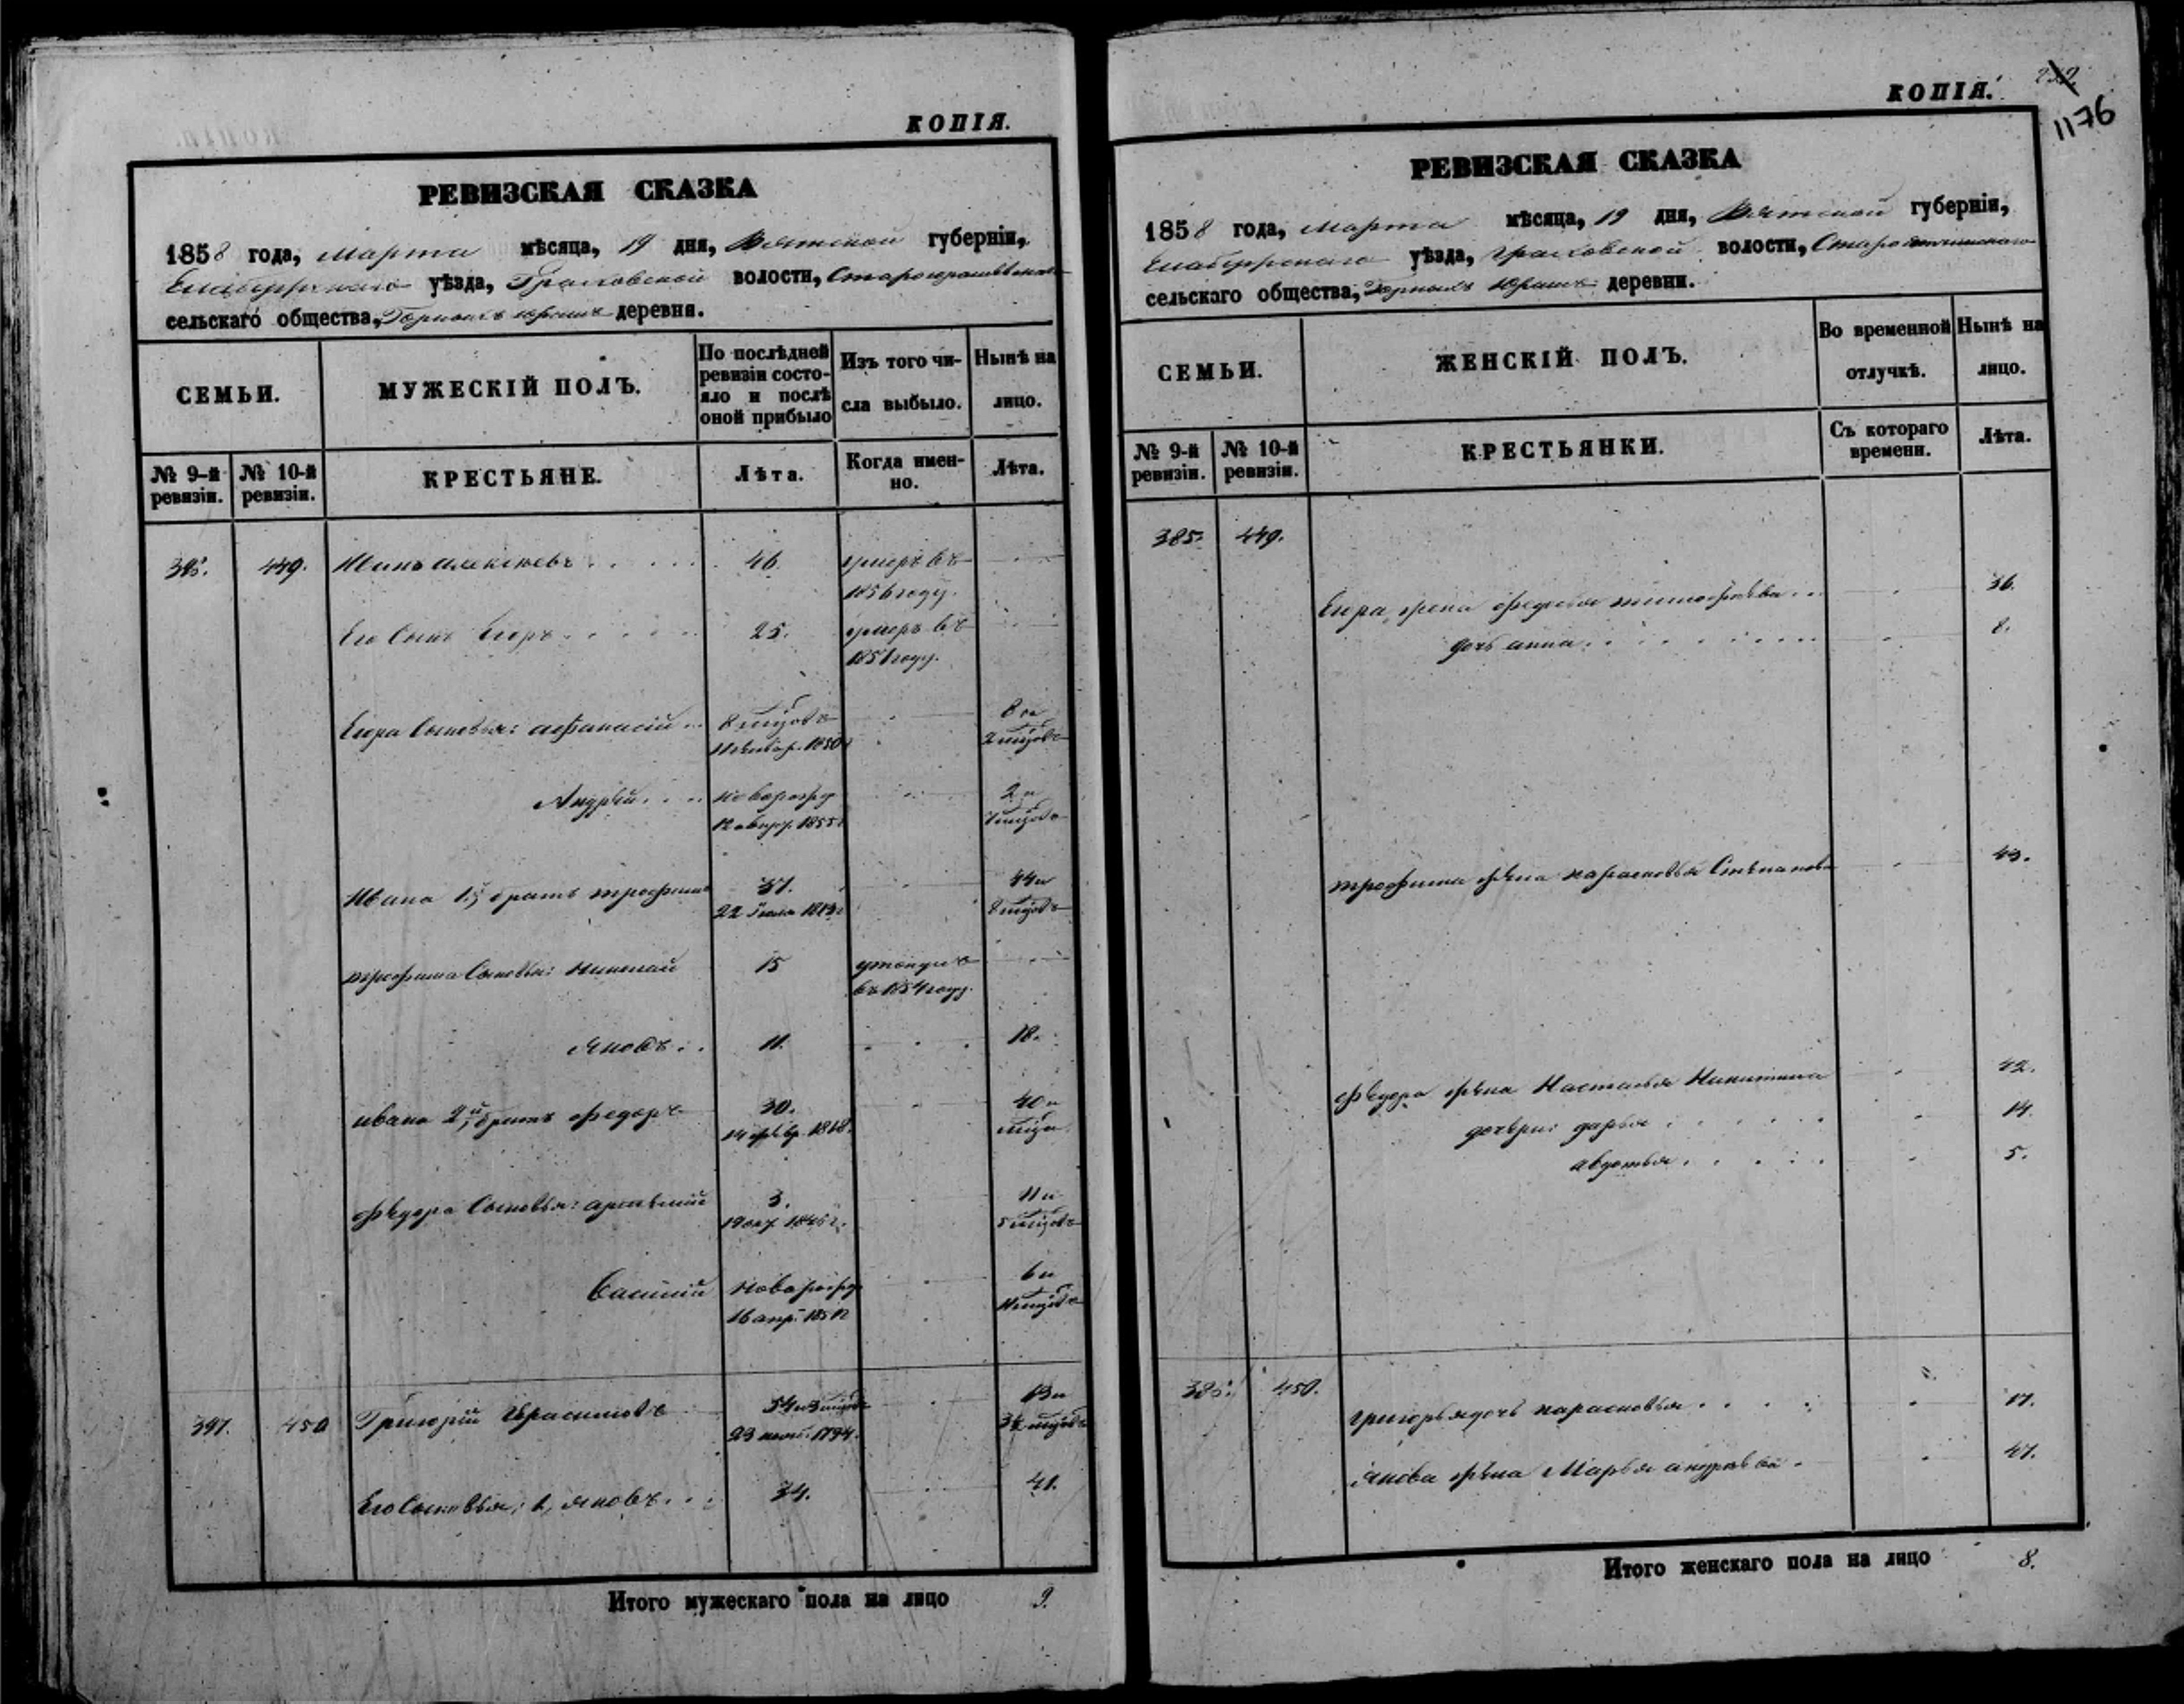 КОПІЯ.
РЕВИЗСКАЯ СКАЗКА
1858 года, Марта мѣсяца, 19 дня, Вятской губерніи,
Елабужскаго уѣзда, Граховской волости,
сельскаго общества, Юрашъ деревня.
СЕМЬИ.
МУЖЕСКІЙ ПОЛЪ.
По послѣдней ревизіи состояло и послѣ оной прибыло
Изъ того числа выбыло.
Нынѣ на лицо.
№ 9-й ревизіи.
№ 10-й ревизіи.
КРЕСТЬЯНЕ.
Лѣта.
Когда именно.
Лѣта.
385. 449. Иванъ Алексѣевъ 46. умеръ въ
1856 году.
Его Сынъ Егоръ 25. умеръ въ
1851 году.
Егора Сыновья: афанасій 8 мцовъ 8 и
1850 2 мцовъ
Андрей новорожд 2 и
1855 7 мцовъ
Ивана 1й братъ трофимъ 37. 44 и
22 Іюля 1813 8 мцовъ
трофима Сыновья: Николай 15 утонулъ
въ 1854 году.
Яковъ 11. 18.
ивана 2й братъ федоръ 30. 40 и
14 февр. 1818. мцъ
федора Сыновья: 3. 11 и
19 окт. 1846 г. 5 мцовъ
Василій новорожд 6 и
16 апр. 1851 11 мцовъ
397. 450 Григорій Герасимовъ 54 и 3 мцовъ
23 1794.
Его Сыновья: 1, яковъ 34. 41.
Итого мужескаго пола на лицо 9.
КОПІЯ.
1176
РЕВИЗСКАЯ СКАЗКА
1858 года, Марта мѣсяца, 19 дня, Вятской губерніи,
Елабужскаго уѣзда, Граховской волости,
сельскаго общества, Юрашъ деревни.
СЕМЬИ.
ЖЕНСКІЙ ПОЛЪ.
Во временной отлучкѣ.
Нынѣ на лицо.
№ 9-й ревизіи.
№ 10-й ревизіи.
КРЕСТЬЯНКИ.
Съ котораго времени.
Лѣта.
385. 449.
Егора жена федосья тимофѣева 36.
дочь анна 8.
трофима жена парасковья Степанова 43.
федора жена Настасья Никитина 42.
дочери: дарья 14.
авдотья 5.
450.
григорья дочь парасковья 17.
якова жена Марья андрѣева 47.
Итого женскаго пола на лицо 8.